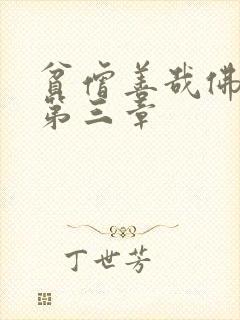 貧僧善哉佛
第三章
丁世芳